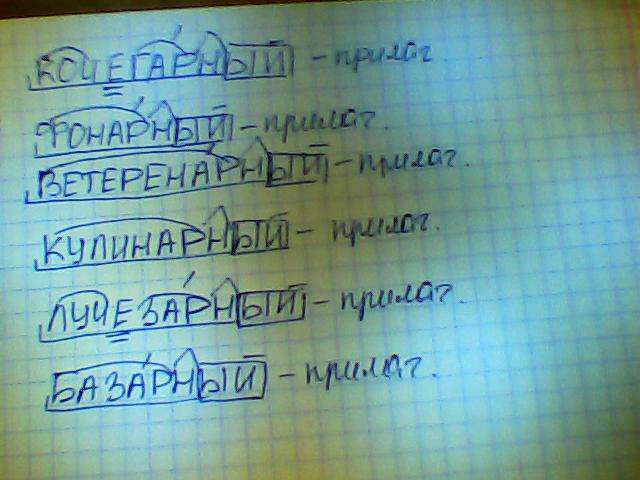 КОЧЕГАРНЫЙ - прилаг
ФОНАРНЫЙ - прилаг.
ВЕТЕРЕНАРНЫЙ - прилаг.
КУЛИНАРНЫЙ - прилаг.
ЛУЧЕЗАРНЫЙ - прилаг.
БАЗАРНЫЙ - прилаг.